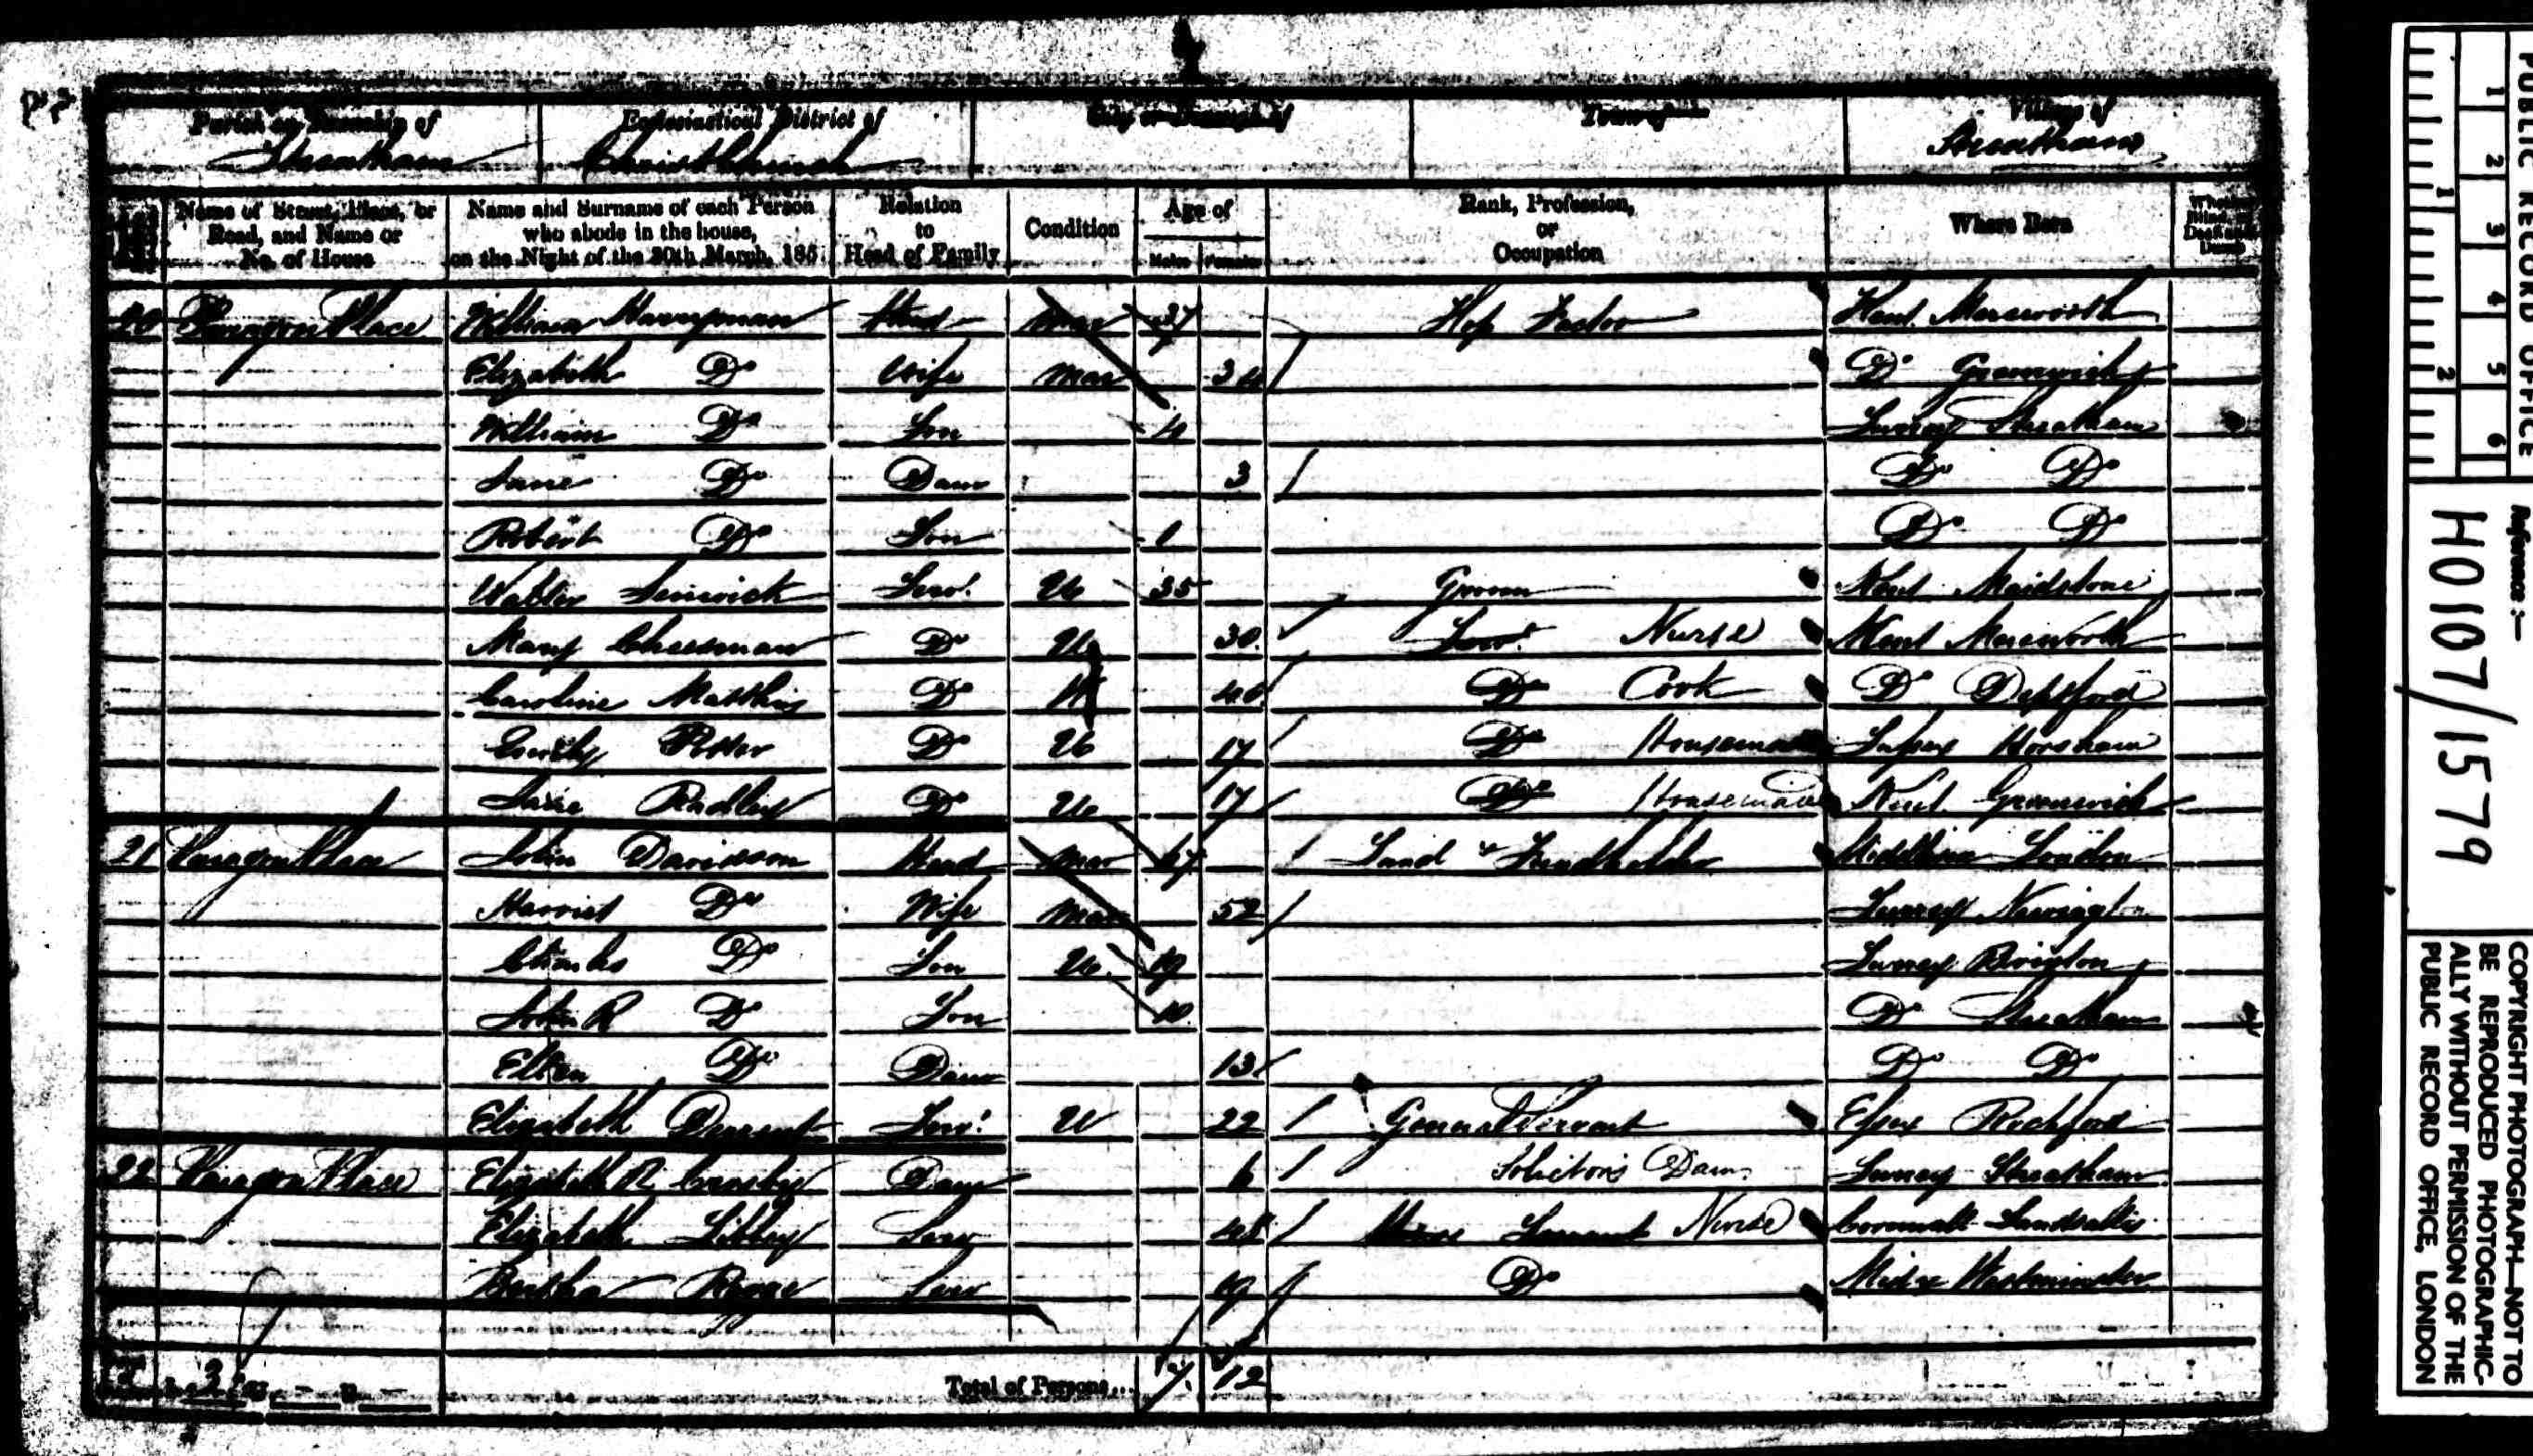 Parish or Township of
Streatham
Ecclesiastical District of
Christ Church
City or Borough of
Town of
Village of
Streatham
Name of Street, Place, or Road, and Name or No. of House
Name and Surname of each Person who abode in the house, on the Night of the 30th March, 185
Relation to Head of Family
Condition
Age of
Males Females
Rank, Profession, or Occupation
Where Born
Whether Blind, or Deaf and Dumb
20 Paragon Place William Head Mar 37 Hop Factor Kent Mereworth
Elizabeth Do Wife Mar 34 Do Greenwich
William Do Son 4 Surrey Streatham
Jane Do Daur 3 Do Do
Robert Do Son 1 Do Do
Walter Servt U 35 Groom Kent Maidstone
Mary Cheesman Do U 30 Servt Nurse Kent Mereworth
Caroline Matthis Do 40 Do Cook Do Deptford
Emily Potter Do U 17 Do Housemaid Sussex Horsham
Jane Radley Do U 17 Do Housemaid Kent Greenwich
21 Paragon Place John Davidson Head Mar 67 Land & Fundholder Middlesex London
Harriet Do Wife Mar 52 Surrey Newington
Charles Do Son U 19 Surrey Brixton
John R Do Son 10 Do Streatham
Ellen Do Daur 13 Do Do
Elizabeth Servt U 22 General Servant Essex Rochford
22 Paragon Place Elizabeth R Crosby Daur 6 Solicitors Daur Surrey Streatham
Elizabeth Libbey Serv 48 Servant Nurse Cornwall
Bertha Serv 19 Do Midsx Westminster
Total of Persons... 7 12
PUBLIC RECORD OFFICE
1 2 3 4 5 6
1 2
Reference :-
HO 107/1579
COPYRIGHT PHOTOGRAPH—NOT TO
BE REPRODUCED PHOTOGRAPHIC-
ALLY WITHOUT PERMISSION OF THE
PUBLIC RECORD OFFICE, LONDON